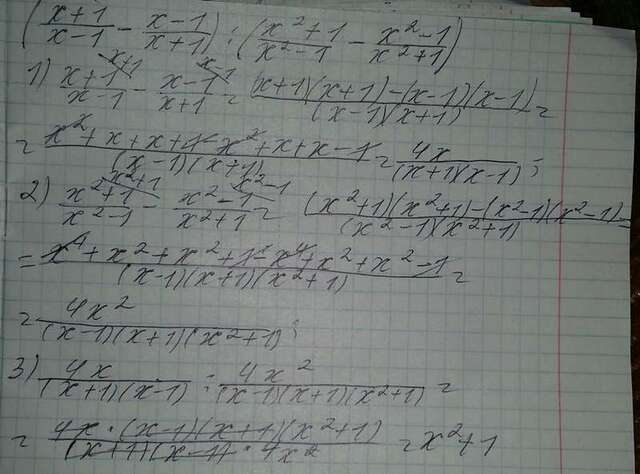 (x+1/x-1 - x-1/x+1) : (x²+1/x²-1 - x²-1/x²+1)
1) x+1/x-1 - x-1/x+1 = (x+1)(x+1)-(x-1)(x-1)/(x-1)(x+1) =
= x²+x+x+1-x²+x+x-1/(x-1)(x+1) = 4x/(x+1)(x-1) ;
2) x²+1/x²-1 - x²-1/x²+1 = (x²+1)(x²+1)-(x²-1)(x²-1)/(x²-1)(x²+1) =
= x⁴+x²+x²+1-x⁴+x²+x²-1/(x-1)(x+1)(x²+1) =
= 4x²/(x-1)(x+1)(x²+1) ;
3) 4x/(x+1)(x-1) : 4x²/(x-1)(x+1)(x²+1) =
= 4x·(x-1)(x+1)(x²+1)/(x+1)(x-1)·4x² = x²+1